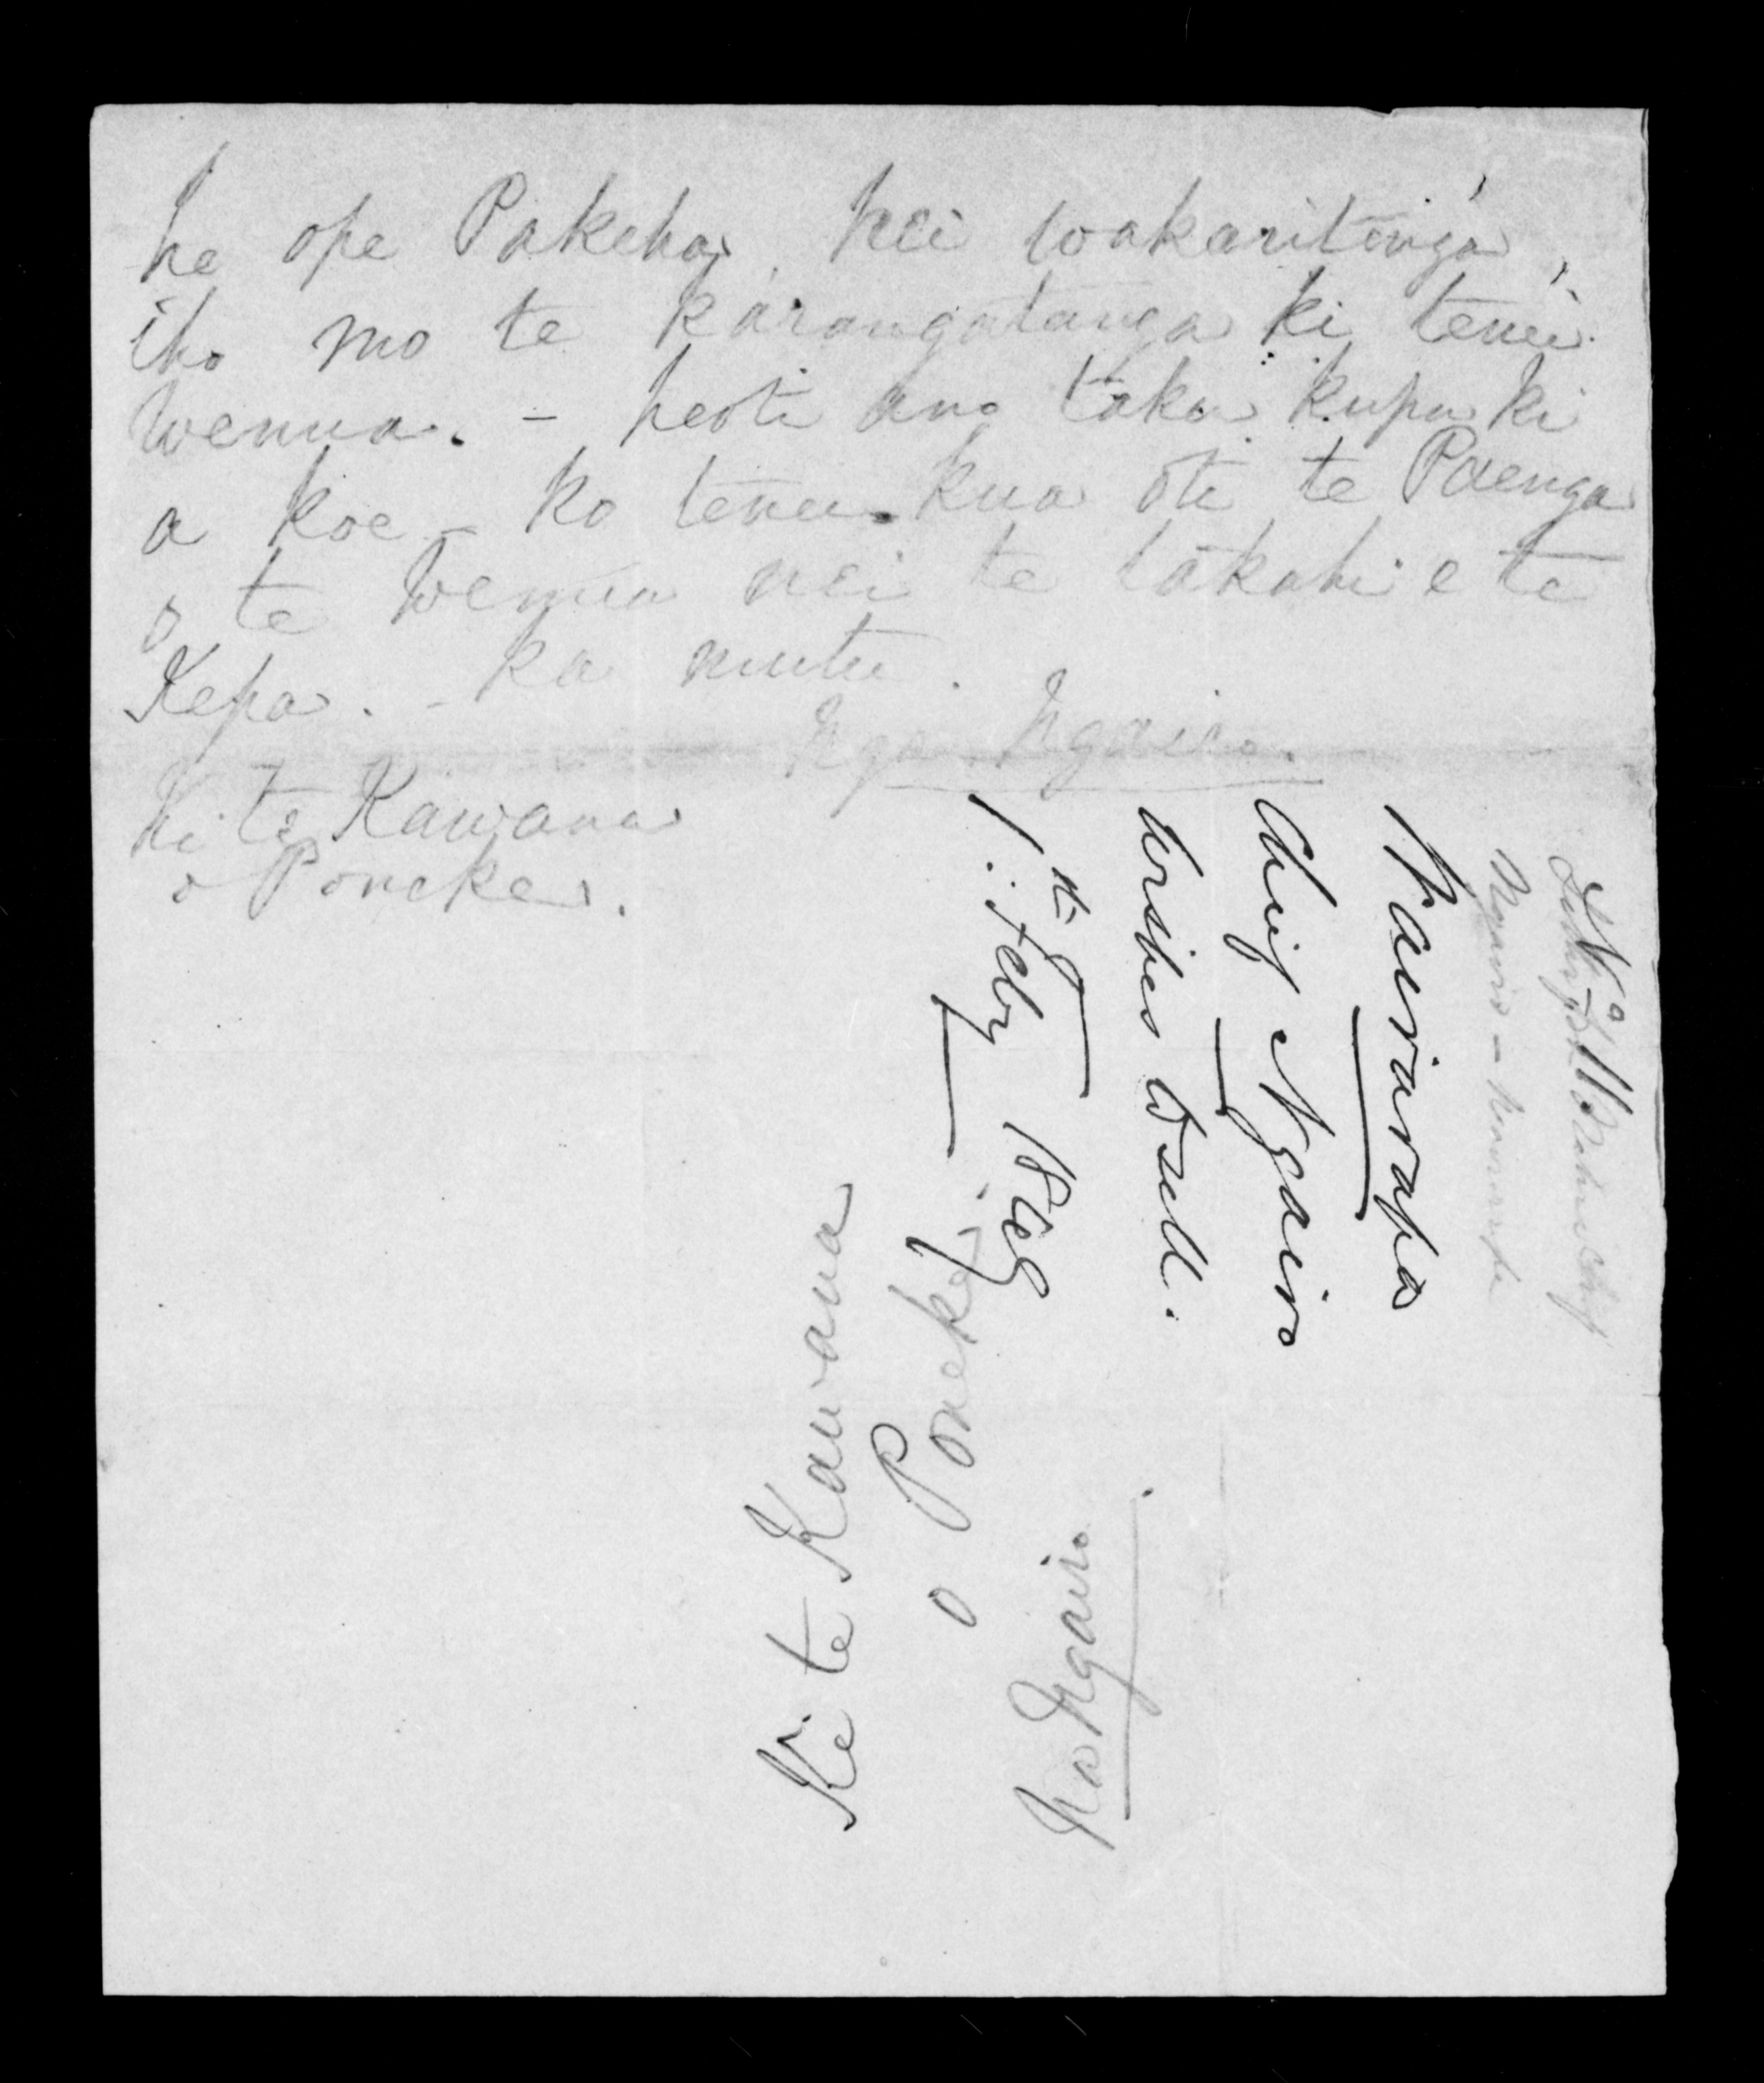 he ope Pakeha, hei wakaritinga
iho mo te karangatanga ki tenei
wenua. - heoti ano taku kupu ki
a koe - ko tenei kua oti te Paenga
o te Wenua nei te takahi e te
Kepa. - ka mutu.
Na Ngairo.
Ki te Kawana
o Poneke.
Wairarapa
Chief Ngairo
desires to sell.
1st Feby 1849
Ki te Kawana
o Poneke
Na Ngairo.